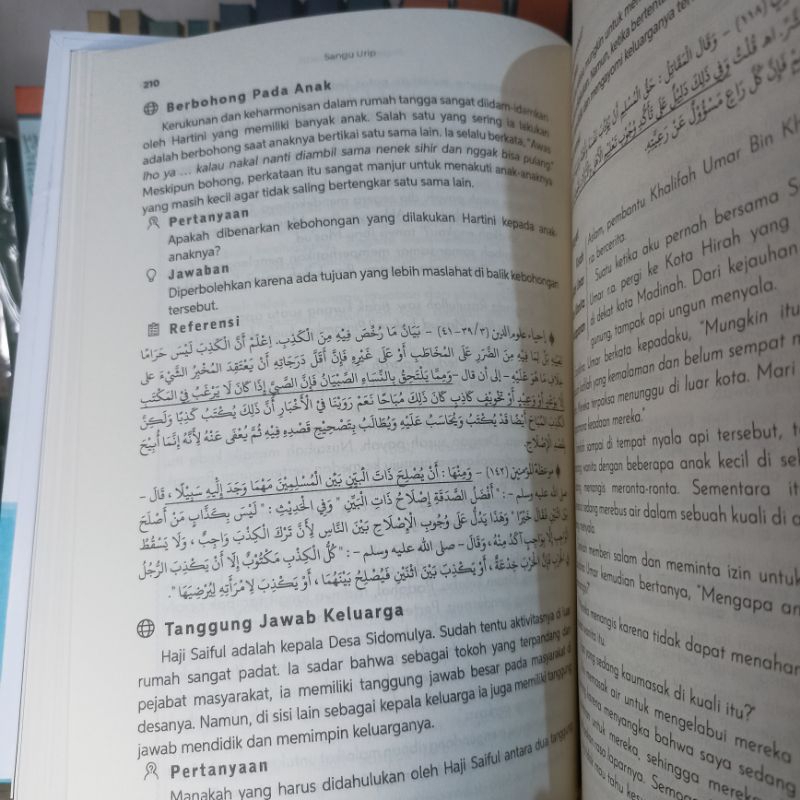 Sangu Urip
210
Berbohong Pada Anak
Kerukunan dan keharmonisan dalam rumah tangga sangat diidam-idamkan
oleh Hartini yang memiliki banyak anak. Salah satu yang sering ia lakukan
adalah berbohong saat anaknya bertikai satu sama lain. Ia selalu berkata, "Awas
lho ya ... kalau nakal nanti diambil sama nenek sihir dan nggak bisa pulang"
Meskipun bohong, perkataan itu sangat manjur untuk menakuti anak-anaknya
yang masih kecil agar tidak saling bertengkar satu sama lain.
Pertanyaan
Apakah dibenarkan kebohongan yang dilakukan Hartini kepada anak-
anaknya?
Jawaban
Diperbolehkan karena ada tujuan yang lebih maslahat di balik kebohongan
tersebut.
Referensi
إحياء علوم الدين (٣/ ٣٩-٤١) – بَيَانُ مَا رُخِّصَ فِيْهِ مِنَ الْكَذِبِ. اِعْلَمْ أَنَّ الْكَذِبَ لَيْسَ حَرَامًا
لِمَا فِيْهِ مِنَ الضَّرَرِ عَلَى الْمُخَاطَبِ أَوْ عَلَى غَيْرِهِ فَإِنَّ أَقَلَّ دَرَجَاتِهِ أَنْ يَعْتَقِدَ الْمُخْبَرُ الشَّيْءَ عَلَى
خِلَافِ مَا هُوَ عَلَيْهِ – إلى أن قال – وَمِمَّا يَلْتَحِقُ بِالنِّسَاءِ الصِّبْيَانُ فَإِنَّ الصَّبِيَّ إِذَا كَانَ لَا يَرْغَبُ فِي الْمَكْتَبِ
إِلَّا بِوَعْدٍ أَوْ وَعِيْدٍ أَوْ تَخْوِيْفٍ كَاذِبٍ كَانَ ذَلِكَ مُبَاحًا نَعَمْ رَوَيْنَا فِي الْأَخْبَارِ أَنَّ ذَلِكَ يُكْتَبُ كَذِبًا وَلَكِنَّ
الْكَذِبَ الْمُبَاحَ أَيْضًا قَدْ يُكْتَبُ وَيُحَاسَبُ عَلَيْهِ وَيُطَالَبُ بِتَصْحِيْحِ قَصْدِهِ فِيْهِ ثُمَّ يُعْفَى عَنْهُ لِأَنَّهُ إِنَّمَا أُبِيْحَ
الْإِصْلَاحِ.
(١٤٢) – وَمِنْهَا : أَنْ يُصْلِحَ ذَاتَ الْبَيْنِ بَيْنَ الْمُسْلِمِيْنَ مَهْمَا وَجَدَ إِلَيْهِ سَبِيْلًا ، قَالَ –
صلى الله عليه وسلم – : " أَفْضَلُ الصَّدَقَةِ إِصْلَاحُ ذَاتِ الْبَيْنِ " وَفِي الْحَدِيْثِ : " لَيْسَ بِكَذَّابٍ مَنْ أَصْلَحَ
بَيْنَ اثْنَيْنِ فَقَالَ خَيْرًا " وَهَذَا يَدُلُّ عَلَى وُجُوْبِ الْإِصْلَاحِ بَيْنَ النَّاسِ لِأَنَّ تَرْكَ الْكِذْبَ وَاجِبٌ ، وَلَا يَسْقُطُ
الْوَاجِبُ إِلَّا بِوَاجِبٍ آكَدَ مِنْهُ، وَقَالَ – صلى الله عليه وسلم – : " كُلُّ الْكِذْبِ مَكْتُوْبٌ إِلَّا أَنْ يَكْذِبَ الرَّجُلُ
فِي الْحَرْبِ فَإِنَّ الْحَرْبَ خِدْعَةٌ ، أَوْ يَكْذِبَ بَيْنَ اثْنَيْنِ فَيُصْلِحُ بَيْنَهُمَا ، أَوْ يَكْذِبَ لِامْرَأَتِهِ لِيُرْضِيَهَا ".
Tanggung Jawab Keluarga
Haji Saiful adalah kepala Desa Sidomulya. Sudah tentu aktivitasnya di luar
rumah sangat padat. Ia sadar bahwa sebagai tokoh yang terpandang dan
pejabat masyarakat, ia memiliki tanggung jawab besar pada masyarakat di
desanya. Namun, di sisi lain sebagai kepala keluarga ia juga memiliki tanggung
jawab mendidik dan memimpin keluarganya.
Pertanyaan
Manakah yang harus didahulukan oleh Haji Saiful antara dua tanggung
Namun, ketika
dan mengayomi keluarganya
Aslam, pembantu Khalifah Umar Bin
r.a. bercerita.
Suatu ketika aku pernah bersama
Umar r.a. pergi ke Kota Hirah yang
di dekat kota Madinah. Dari kejauhan
gunung, tampak api ungun menyala.
Umar berkata kepadaku, "Mungkin itu
yang kemalaman dan belum sempat
terpaksa menunggu di luar kota. Mari
keadaan mereka."
sampai di tempat nyala api tersebut,
wanita dengan beberapa anak kecil di
menangis meronta-ronta. Sementara
sedang merebus air dalam sebuah kuali di
memberi salam dan meminta izin untuk
Umar kemudian bertanya, "Mengapa
menangis karena tidak dapat menahan
wanita itu.
yang sedang kaumasak di kuali itu?"
memasak air untuk mengelabui mereka
menyangka bahwa saya sedang
untuk mereka, sehingga mereka